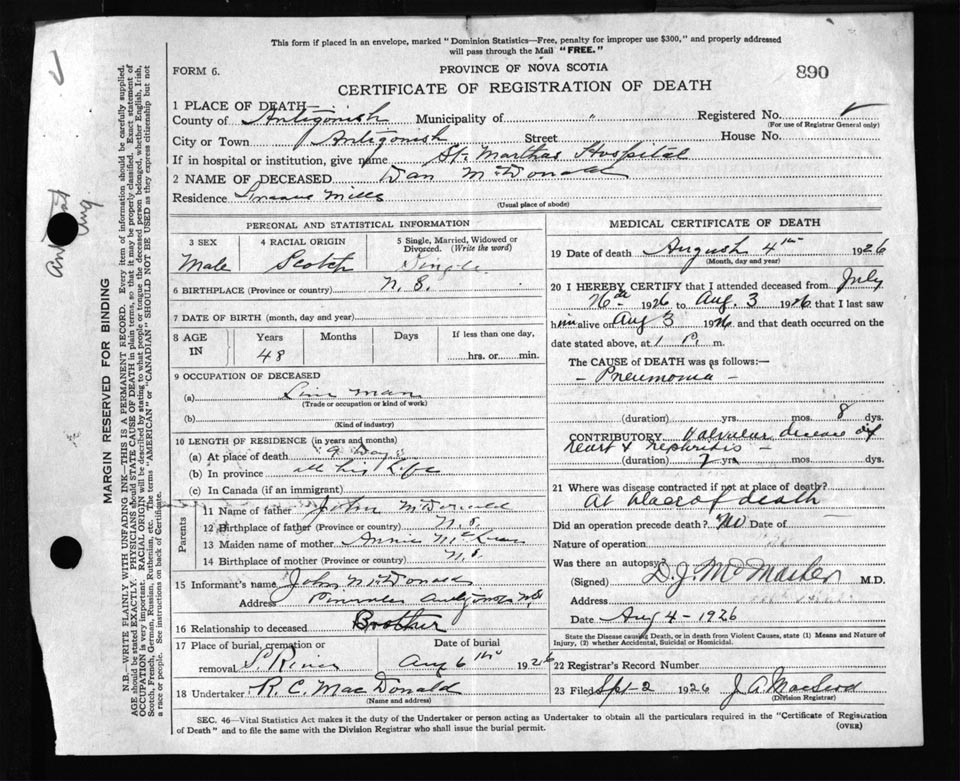 This form if placed in an envelope, marked "Dominion Statistics—Free, penalty for improper use $300," and properly addressed
will pass through the Mail "FREE."
FORM 6.
PROVINCE OF NOVA SCOTIA
890
CERTIFICATE OF REGISTRATION OF DEATH
1 PLACE OF DEATH—
County of Antigonish Municipality of " Registered No.
(For use of Registrar General only)
City or Town Antigonish Street House No.
If in hospital or institution, give name St. Marthas Hospital
2 NAME OF DECEASED Dan McDonald
Residence Mills
(Usual place of abode)
PERSONAL AND STATISTICAL INFORMATION
3 SEX 4 RACIAL ORIGIN 5 Single, Married, Widowed or Divorced. (Write the word)
Male Scotch Single.
6 BIRTHPLACE (Province or country) N. S.
7 DATE OF BIRTH (month, day and year)
8 AGE IN Years Months Days If less than one day,
48 hrs. or min.
9 OCCUPATION OF DECEASED
(a) man
(Trade or occupation or kind of work)
(b)
(Kind of industry)
10 LENGTH OF RESIDENCE (in years and months)
(a) At place of death 9 Days
(b) In province All his Life
(c) In Canada (if an immigrant)
Parents
11 Name of father John McDonald
12 Birthplace of father (Province or country) N. S.
13 Maiden name of mother Annie
14 Birthplace of mother (Province or country) N. S.
15 Informant's name John McDonald
Address
16 Relationship to deceased Brother
17 Place of burial, cremation or removal Date of burial
S River Aug 6th 1926
18 Undertaker R. C. MacDonald
(Name and address)
MEDICAL CERTIFICATE OF DEATH
19 Date of death August 4th 1926
(Month, day and year)
20 I HEREBY CERTIFY that I attended deceased from July
26th 1926 to Aug. 3 1926 that I last saw
him alive on Aug 3 1926 and that death occurred on the
date stated above, at 1 P. m.
The CAUSE of DEATH was as follows:—
- Pneumonia -
(duration) yrs. mos. 8 dys.
CONTRIBUTORY Valvular disease of
heart & nephritis -
(duration) yrs. mos. dys.
21 Where was disease contracted if not at place of death?
At place of death
Did an operation precede death? No Date of
Nature of operation
Was there an autopsy
(Signed) D. J. McMaster M.D.
Address
Date Aug 4 - 1926
State the Disease causing Death, or in death from Violent Causes, state (1) Means and Nature of
Injury, (2) whether Accidental, Suicidal or Homicidal.
22 Registrar's Record Number
23 Filed Spt-2 1926 J A MacLeod
(Division Registrar)
SEC. 46—Vital Statistics Act makes it the duty of the Undertaker or person acting as Undertaker to obtain all the particulars required in the "Certificate of Registration
of Death" and to file the same with the Division Registrar who shall issue the burial permit. (OVER)
MARGIN RESERVED FOR BINDING
N.B.—WRITE PLAINLY WITH UNFADING INK—THIS IS A PERMANENT RECORD. Every item of information should be carefully supplied.
AGE should be stated EXACTLY. PHYSICIANS should STATE CAUSE OF DEATH in plain terms, so that it may be properly classified. Exact statement of
OCCUPATION is very important. RACIAL ORIGIN will be described by stating to what people or tongue the deceased person belonged, whether English, Irish,
Scotch, French, German, Russian, Ruthenian, etc. The terms "AMERICAN" or "CANADIAN" SHOULD NOT BE USED as they express citizenship but not
a race or people. See instructions on back of Certificate.